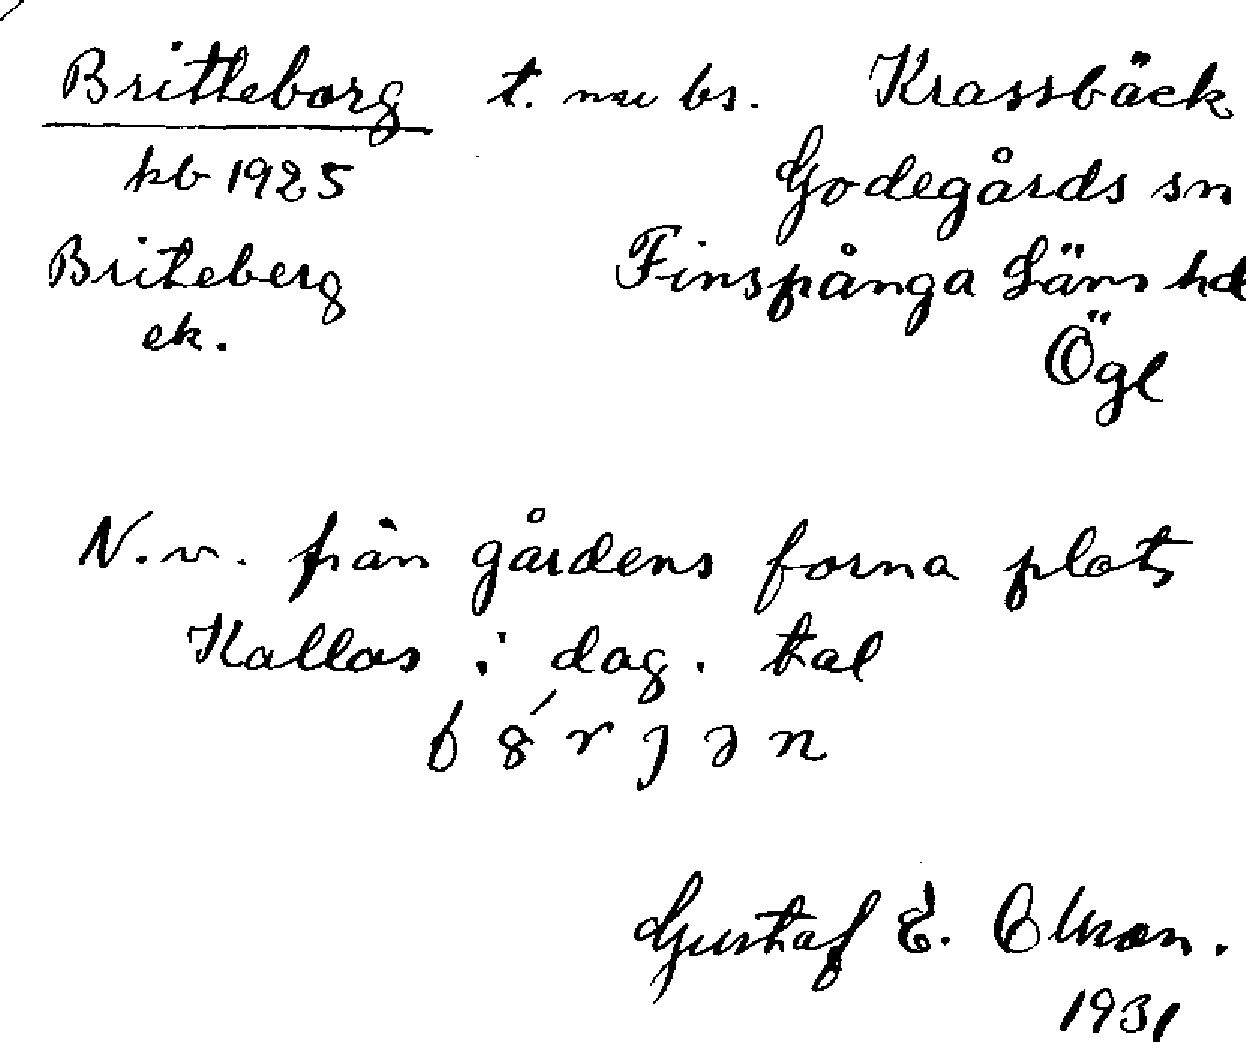 Britteborg t. nu bs. Krassbäck
kb 1925 Godegårds sn
Briteberg Finspånga Läns hd
ek. Ögl
N.v. från gårdens forna plats
Kallas i dag. tal
Gustaf E. Olson.
1931